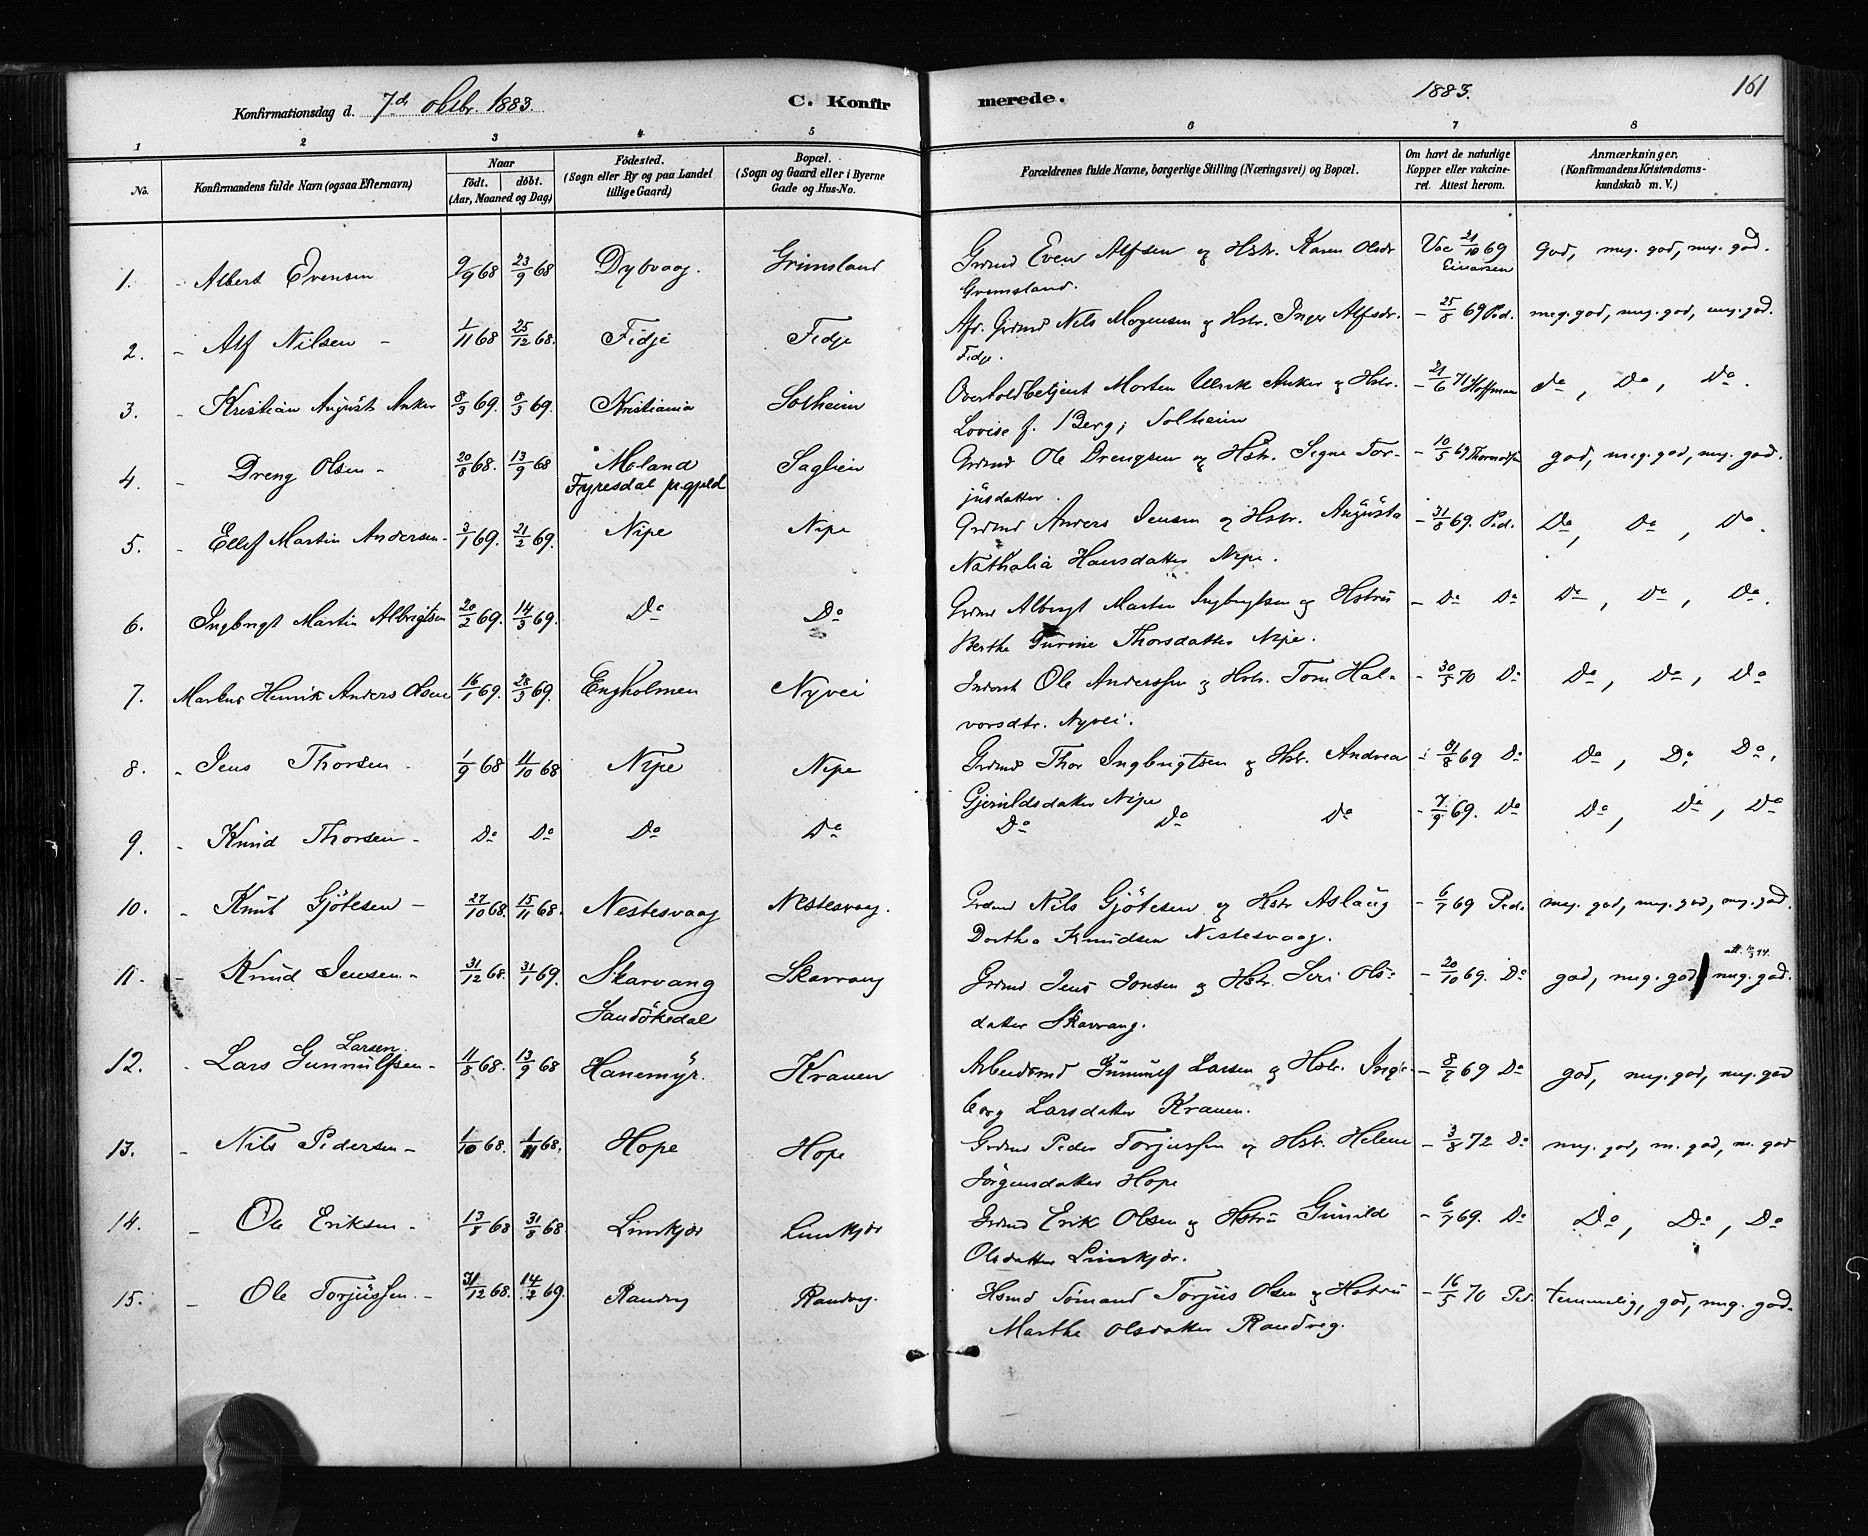 Konfirmationsdag d. 7de oktbr. 1883. C. Konfirmerede. 1883. 161
1 2 3 4 5 6 7 8
No. Konfirmandens fulde Navn (ogsaa Efternavn) Naar født. døbt. (Aar, Maaned og Dag) Födested. (Sogn eller By og paa Landet tillige Gaard) Bopæl. (Sogn og Gaard eller i Byerne Gade og Hus-No. Forældrenes fulde Navne, borgerlige Stilling (Næringsvei) og Bopæl. Om havt de naturlige Kopper eller vakcineret. Attest herom. Anmærkninger. (Konfirmandens Kristendomskundskab m. V.)
1. - Albert Evensen 9/9 68 23/9 68 Dybvaag. Grimsland Grdmd Even Alfsen og Hstr. Karen Olsdr Vac 21/10 69 Einarsen God, meg. god, meg. god.
Grimsland.
2. - Alf Nilsen - 1/11 68 25/12 68. Fidje Fidje Afd. Grdmd Nils Mogensen og Hstr. Inger Alfsdr. - 25/8 69 Ped. meg. god, meg. god, meg. god.
Fidje.
3. - Kristian August Anker 8/3 69. 8/3 69. Kristiania Solheim Overtoldbetjent Morten Ulrik Anker og Hstr. - 21/6 71 Hoffman do, Do, Do.
Lovise f. Berg, Solheim
4. - Dreng Olsen - 20/8 68. 13/9 68 Moland Saglien Grdmd Ole Drengsen og Hstr. Signe Tor- - 10/5 69 Thormodsen god, meg. god, meg. god.
Fyresdal prgjeld jusdatter.
5. - Ellef Martin Andersen - 3/1 69. 21/2 69. Nipe Nipe Grdmd Anders Jensen og Hstr. Augusta - 31/8 69. Ped. Do, Do, Do.
Nathalia Hansdatter Nipe.
6. Ingbrigt Martin Albrigtsen 20/2 69. 14/3 69. Do Do Grdmd Albrigt Martin Ingbrigtsen og Hstru - Do Do Do, Do, Do.
Berthe Gurine Thorsdatter Nipe.
7. Markus Henrik Anders Olsen 16/1 69. 28/3 69. Engholmen Nyvei Inderst Ole Anderssen og Hstr. Tone Hal- - 30/5 70 Do Do, Do, Do
vorsdtr. Nyvei.
8. - Jens Thorsen 1/9 68 11/10 68 Nipe Nipe Grdmd Thor Ingbrigtsen og Hstr. Andrea - 31/8 69 Do Do, Do Do,
Gjeruldsdatter Nipe
9. - Knud Thorsen - Do Do Do Do Do Do Do - 7/9 69. Do Do, Do, Do
10. - Knut Gjötesen - 27/10 68. 15/11 68. Nestesvaag Nestesvaag. Grdmd Nils Gjötesen og Hstr Aslaug - 6/7 69 Ped. meg. god, meg. god, meg. god.
Dorthea Knudsen Nestesvaag.
11. - Knud Jensen. - 31/12 68. 31/1 69. Skarvang Skarvang Grdmd Jens Jonsen og Hstr. Siri Ols- - 20/10 69. Do god, meg. god, meg. god.
Sandökedal datter Skarvang.
12. - Lars Gunnulfsen - Larsen. 11/8 68. 13/9 68 Hanemyr. Kranen Arbeidsmd Gunnulf Larsen og Hstr. Inge- - 8/7 69 Do god, meg. god, meg. god
borg Larsdatter Kranen.
13. - Nils Pedersen - 1/10 68. 1/11 68. Hope Hope Grdmd Peder Torjussen og Hstr. Helene - 3/8 72 Do meg. god, m. god, m. god
Jörgensdatter Hope
14. - Ole Eriksen - 13/8 68 31/8 68. Linnkjær Linnkjær Grdmd Erik Olsen og Hstru Gunild - 6/7 69. Do Do, Do, Do
Olsdatter Linnkjær.
15. - Ole Torjussen. - 31/12 68. 14/2 69. Randvig Randvig. Hsmd Sömand Torjus Olsen og Hstru - 16/5 70 Ped. temmelig, god, meg. god.
Marthe Olsdatter Randvig.